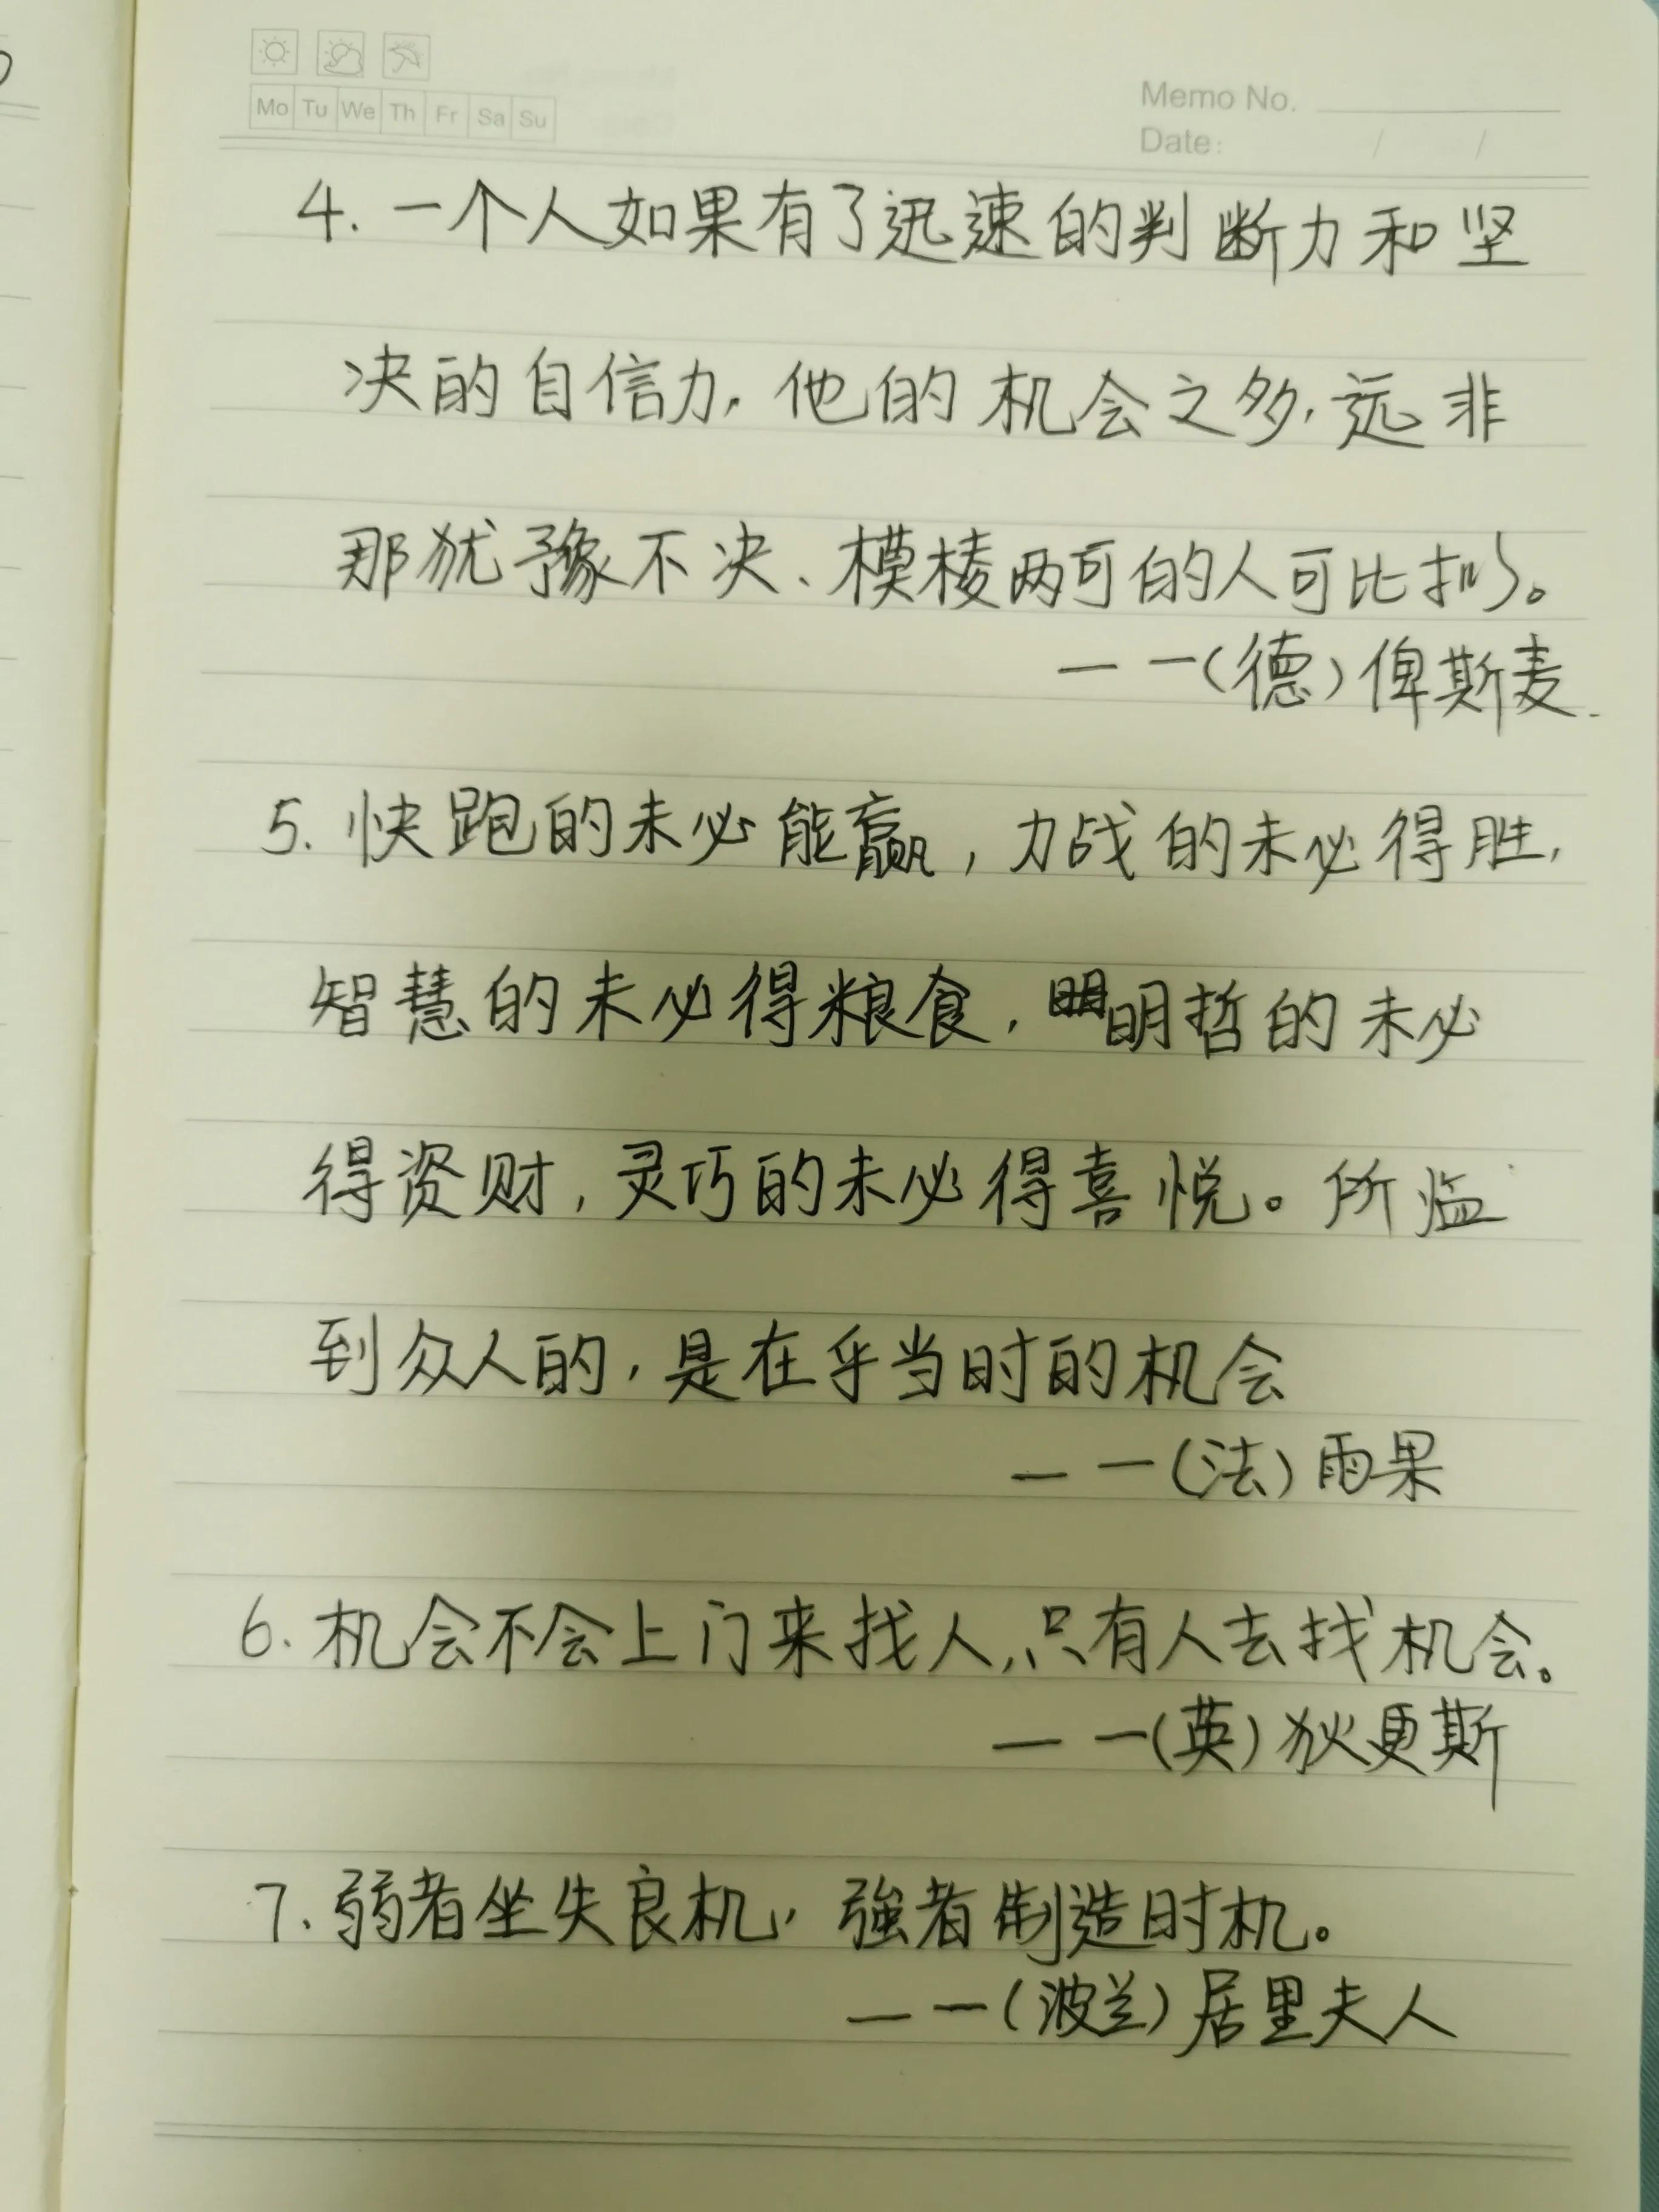 Mo Tu We Th Fr Sa Su
Memo No.
Date: / /
4. 一个人如果有了迅速的判断力和坚
决的自信力,他的机会之多,远非
那犹豫不决、模棱两可的人可比拟。
——(德)俾斯麦.
5. 快跑的未必能赢,力战的未必得胜,
智慧的未必得粮食,明哲的未必
得资财,灵巧的未必得喜悦。所临
到众人的,是在乎当时的机会
——(法)雨果
6. 机会不会上门来找人,只有人去找机会。
——(英)狄更斯
7. 弱者坐失良机,強者制造时机。
——(波兰)居里夫人